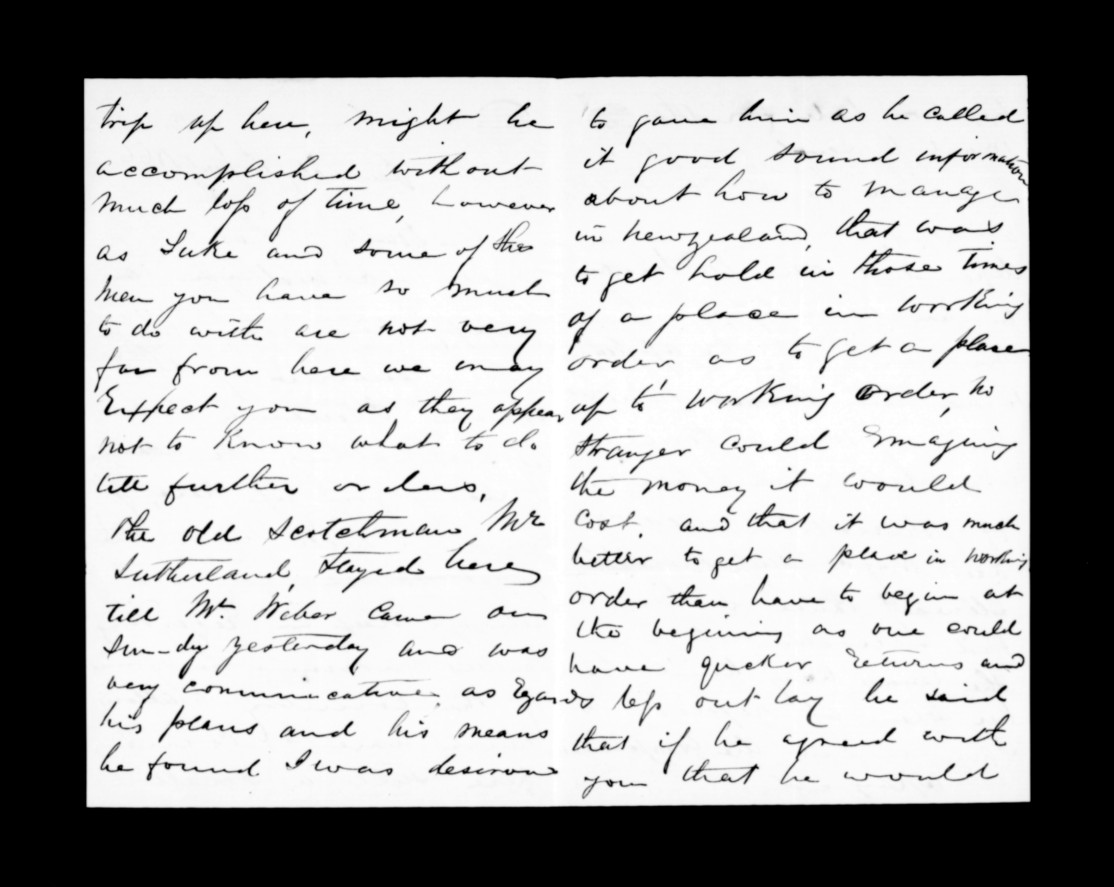 trip up here, might be
accomplished without
much loss of time, however
as Luke and some of the
men you have so much
to do with are not very
far from here we may
Expect you as they appear
not to know what to do
till further orders,
The old Scotchman Mr
Sutherland, stayed here
till Mr Weber came on
Sun-dy yesterday and was
very communicative, as Egards
his plans and his means
he found I was desirous
to gave him as he called
it good sound information
about how to manage
in Newzealand, that was
to get hold in those times
of a place in working
order as to get a place
up to working order, no
stranger could Imagine
the money it would
cost, and that it was much
better to get a place in working
order than have to begin at
the beginning as one could
have quicker Returns and
less out lay he said
that if he agreed with
you that he would